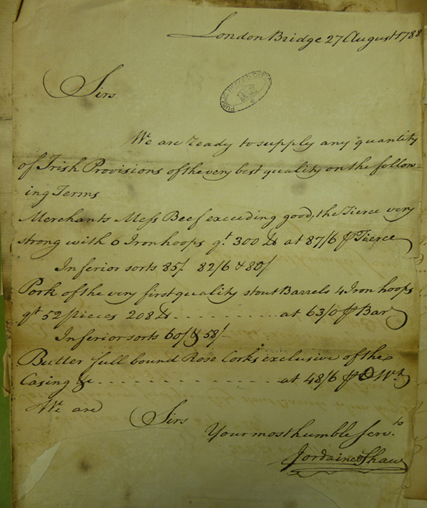 London Bridge 27 August 1788
Sirs
We are ready to supply any quantity
of Irish Provisions of the very best quality on the follow-
ing Terms
Merchants Mess Beef exceeding good, the Tierce very
strong with 6 Iron hoops qt 300 lbs at 87/6 P Tierce
Inferior sorts 85/ 82/6 & 80/
Pork of the very first quality stout Barrels 4 Iron hoops
qt 52 pieces 208 lbs at 63/0 P Bar
Inferior sorts 60/ & 58/
Butter full bound Rose Corks exclusive of the
Casing &c at 48/6 P C Wt
We are Sirs
Your most humble Servts
Jordaine & Shaw